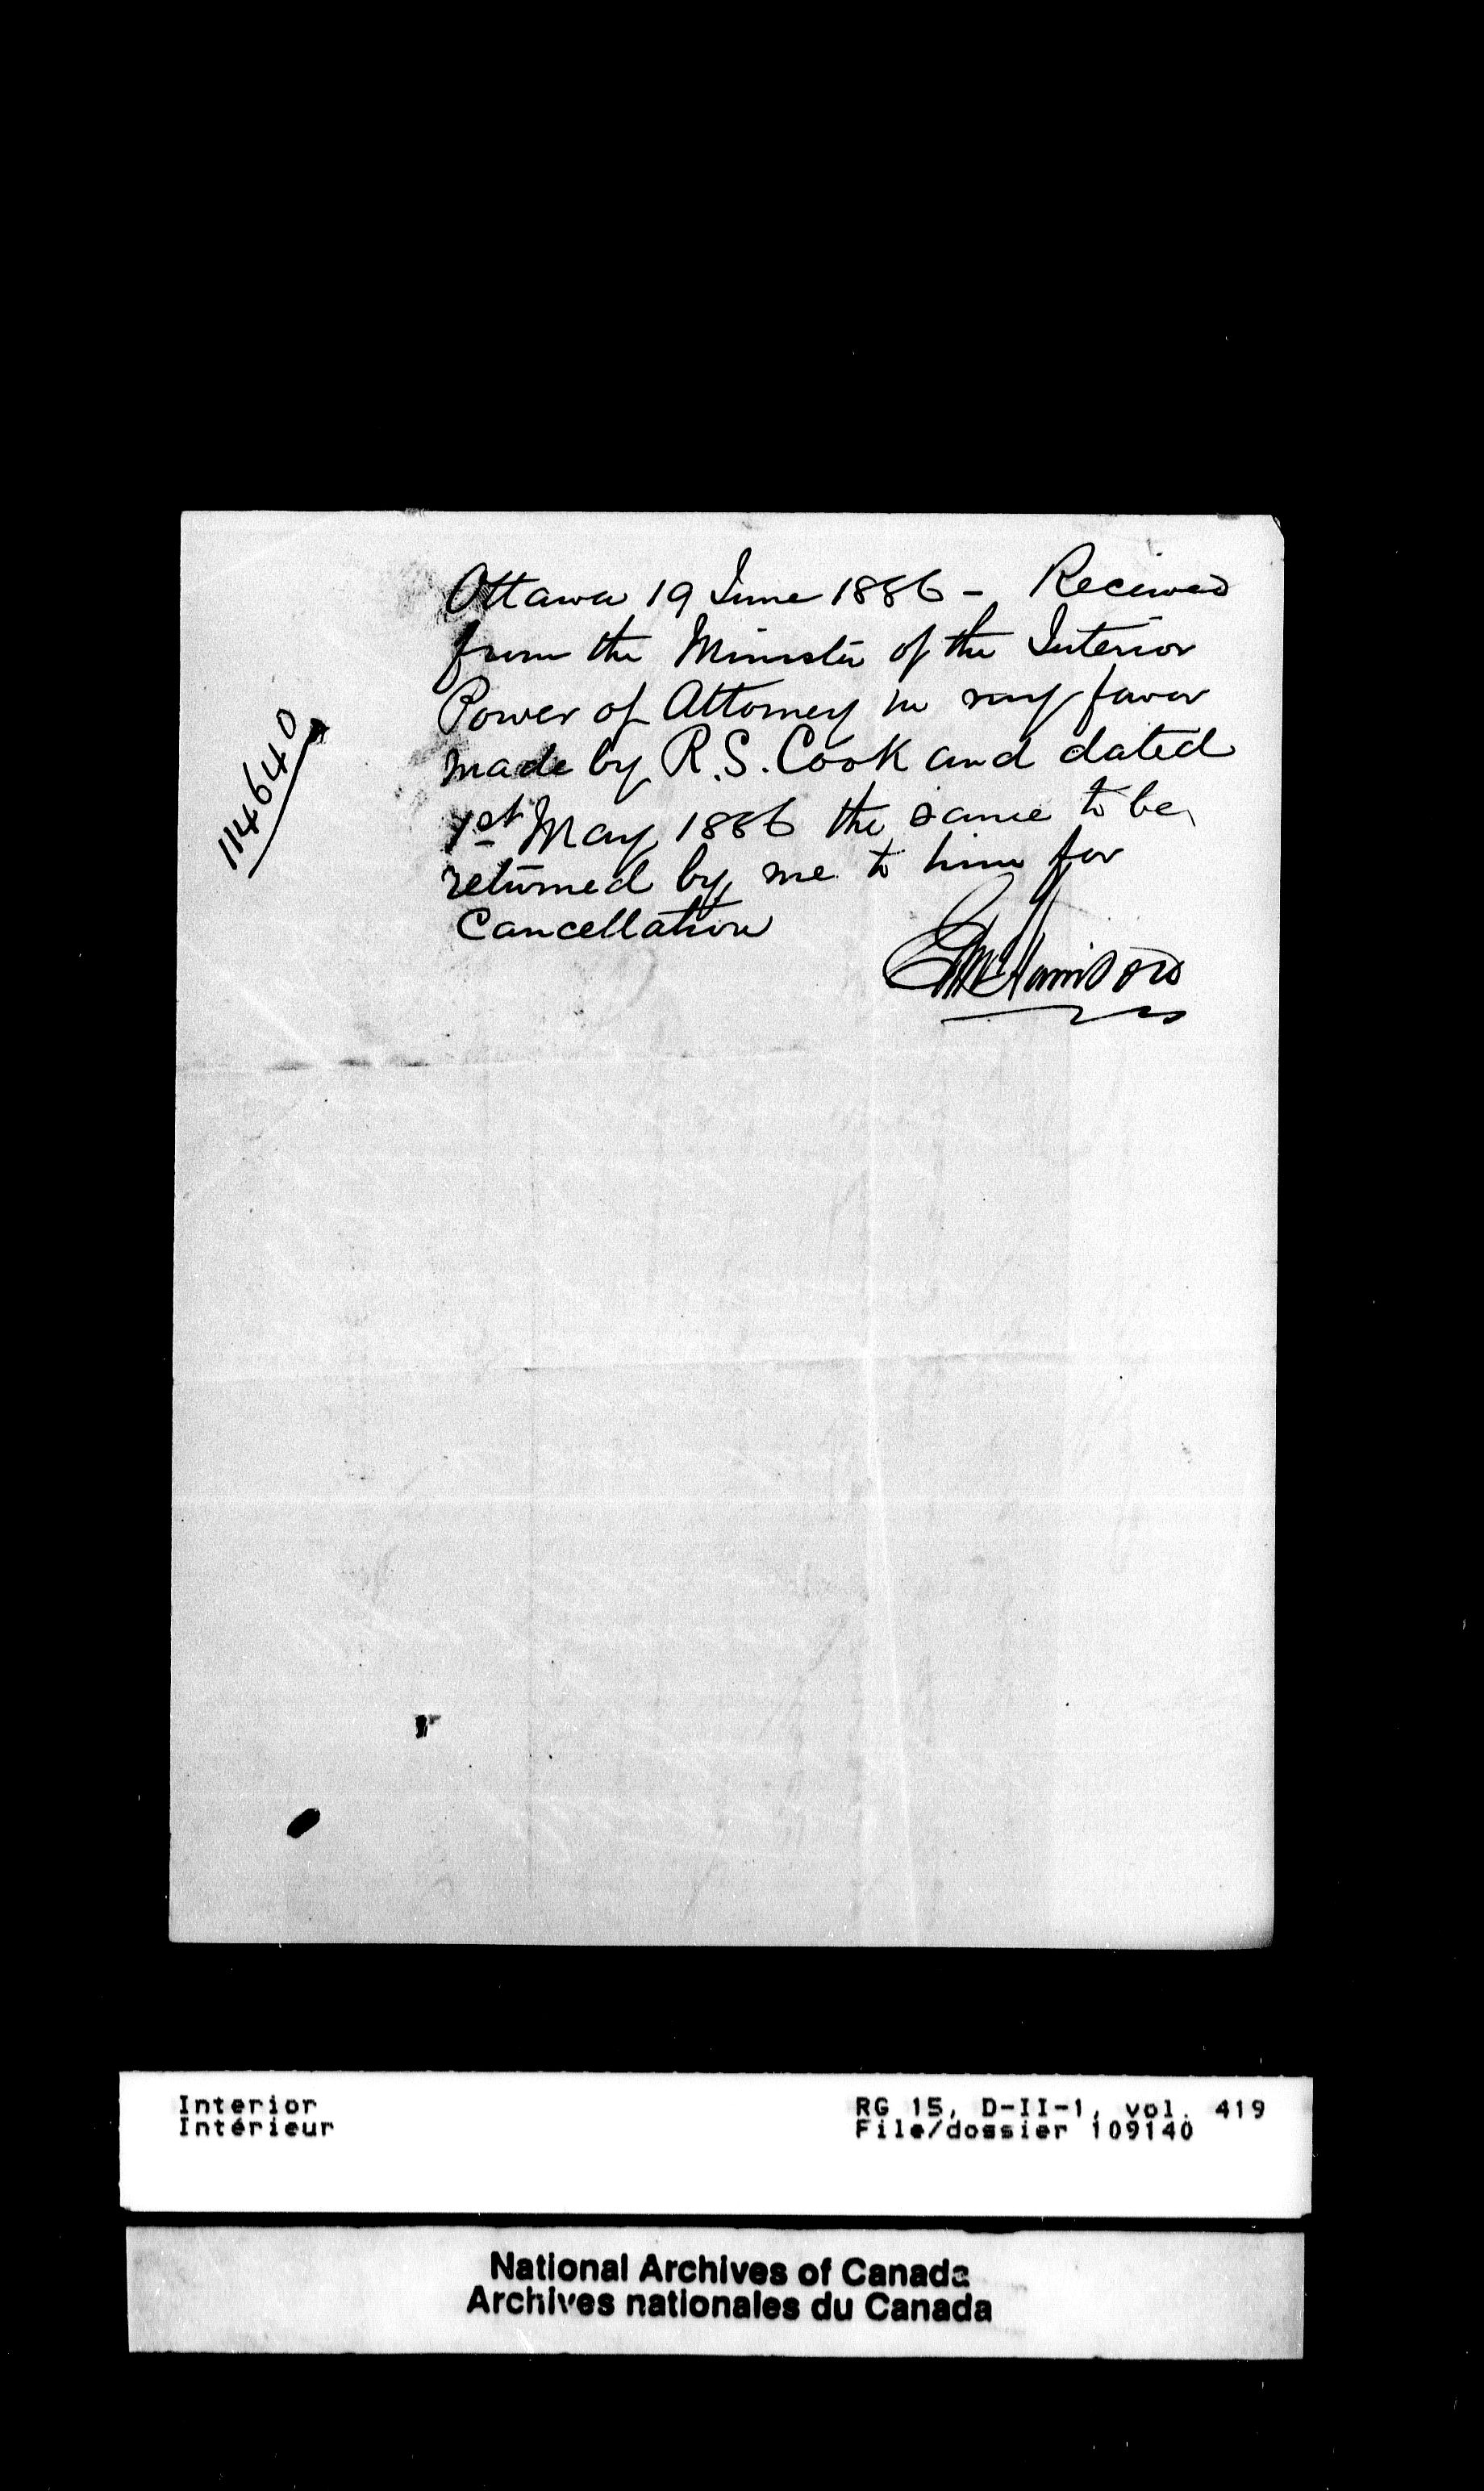 Ottawa 19 June 1886 - Received
from the Minister of the Interior
Power of Attorney in my favor
made by R.S. Cook and dated
1st May 1886 the same to be
returned by me to him for
Cancellation
114640
Interior
Intérieur
RG 15, D-II-1, vol. 419
File/dossier 109140
National Archives of Canada
Archives nationales du Canada